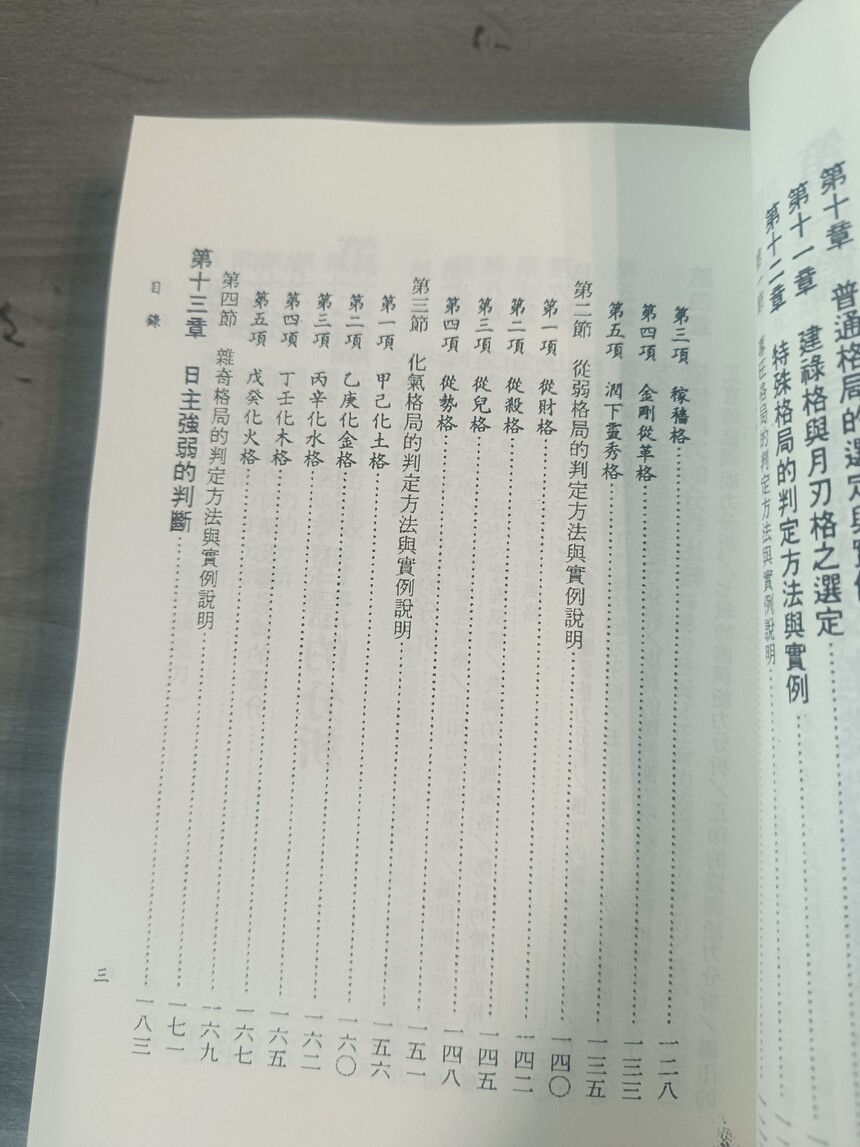 第十章 普通格局的選定與實
第十一章 建祿格與月刃格之選定
第十二章 特殊格局的判定方法與實例
格局的判定方法與實例說明
第三項 稼穡格……一二八
第四項 金剛從革格……一三三
第五項 潤下靈秀格……一三五
第二節 從弱格局的判定方法與實例說明……一四〇
第一項 從財格……一四二
第二項 從殺格……一四五
第三項 從兒格……一四八
第四項 從勢格……一五一
第三節 化氣格局的判定方法與實例說明……一五六
第一項 甲己化土格……一六〇
第二項 乙庚化金格……一六二
第三項 丙辛化水格……一六五
第四項 丁壬化木格……一六七
第五項 戊癸化火格……一六九
第四節 雜奇格局的判定方法與實例說明……一七一
第十三章 日主強弱的判斷……一八三
目錄
三